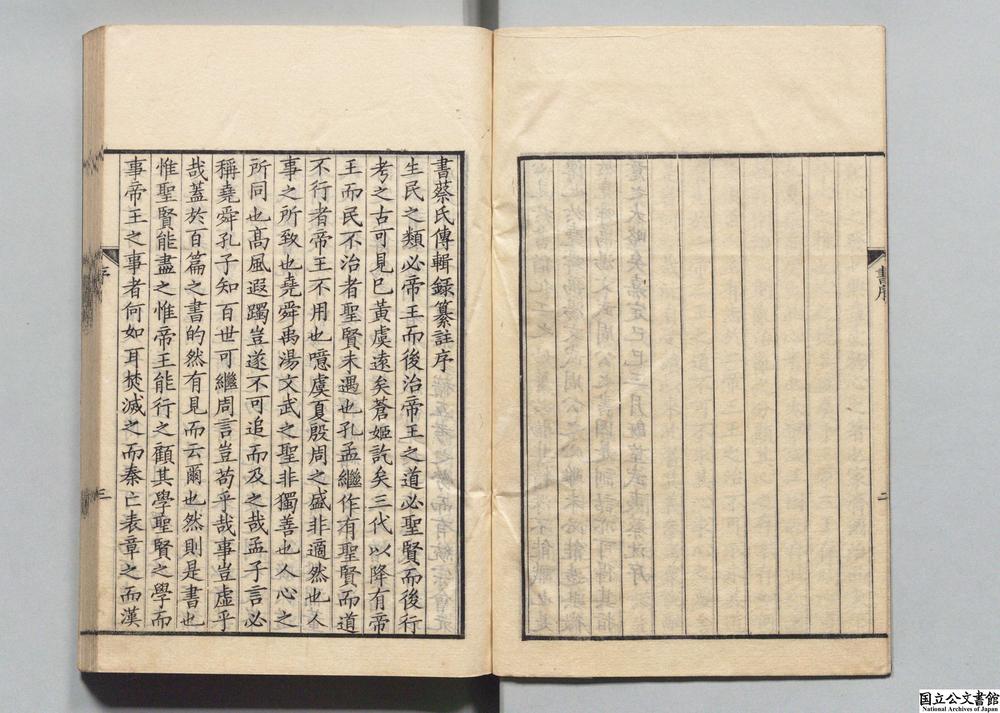 書序
二
書蔡氏傳輯録纂註序
生民之類必帝王而後治帝王之道必聖賢而後行
考之古可見已黃虞遠矣蒼姬訖矣三代以降有帝
王而民不治者聖賢未遇也孔孟繼作有聖賢而道
不行者帝王不用也噫虞夏殷周之盛非適然也人
事之所致也堯舜禹湯文武之聖非獨善也人心之
所同也高風遐躅豈遂不可追而及之哉孟子言必
稱堯舜孔子知百世可繼周言豈苟乎哉事豈虛乎
哉蓋於百篇之書的然有見而云爾也然則是書也
惟聖賢能盡之惟帝王能行之顧其學聖賢之學而
事帝王之事者何如耳焚滅之而秦亡表章之而漢
序
三
国立公文書館
National Archives of Japan